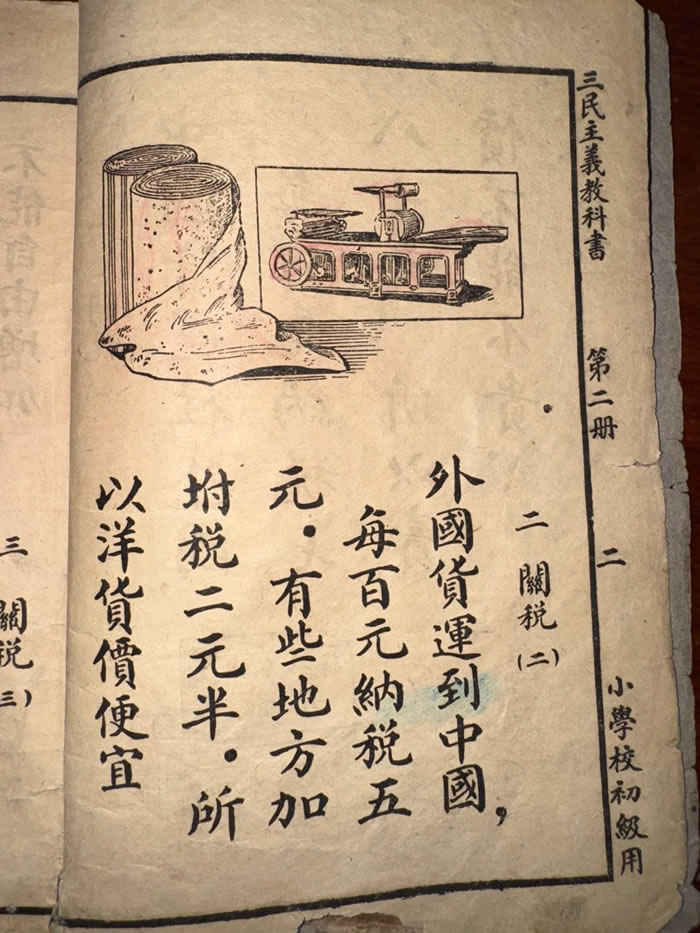 三民主義教科書 第二册 二 小學校初級用
二 關税(二)
外國貨運到中國,
每百元納税五
元。有些地方加
坿税二元半。所
以洋貨價便宜
三 關税(三)